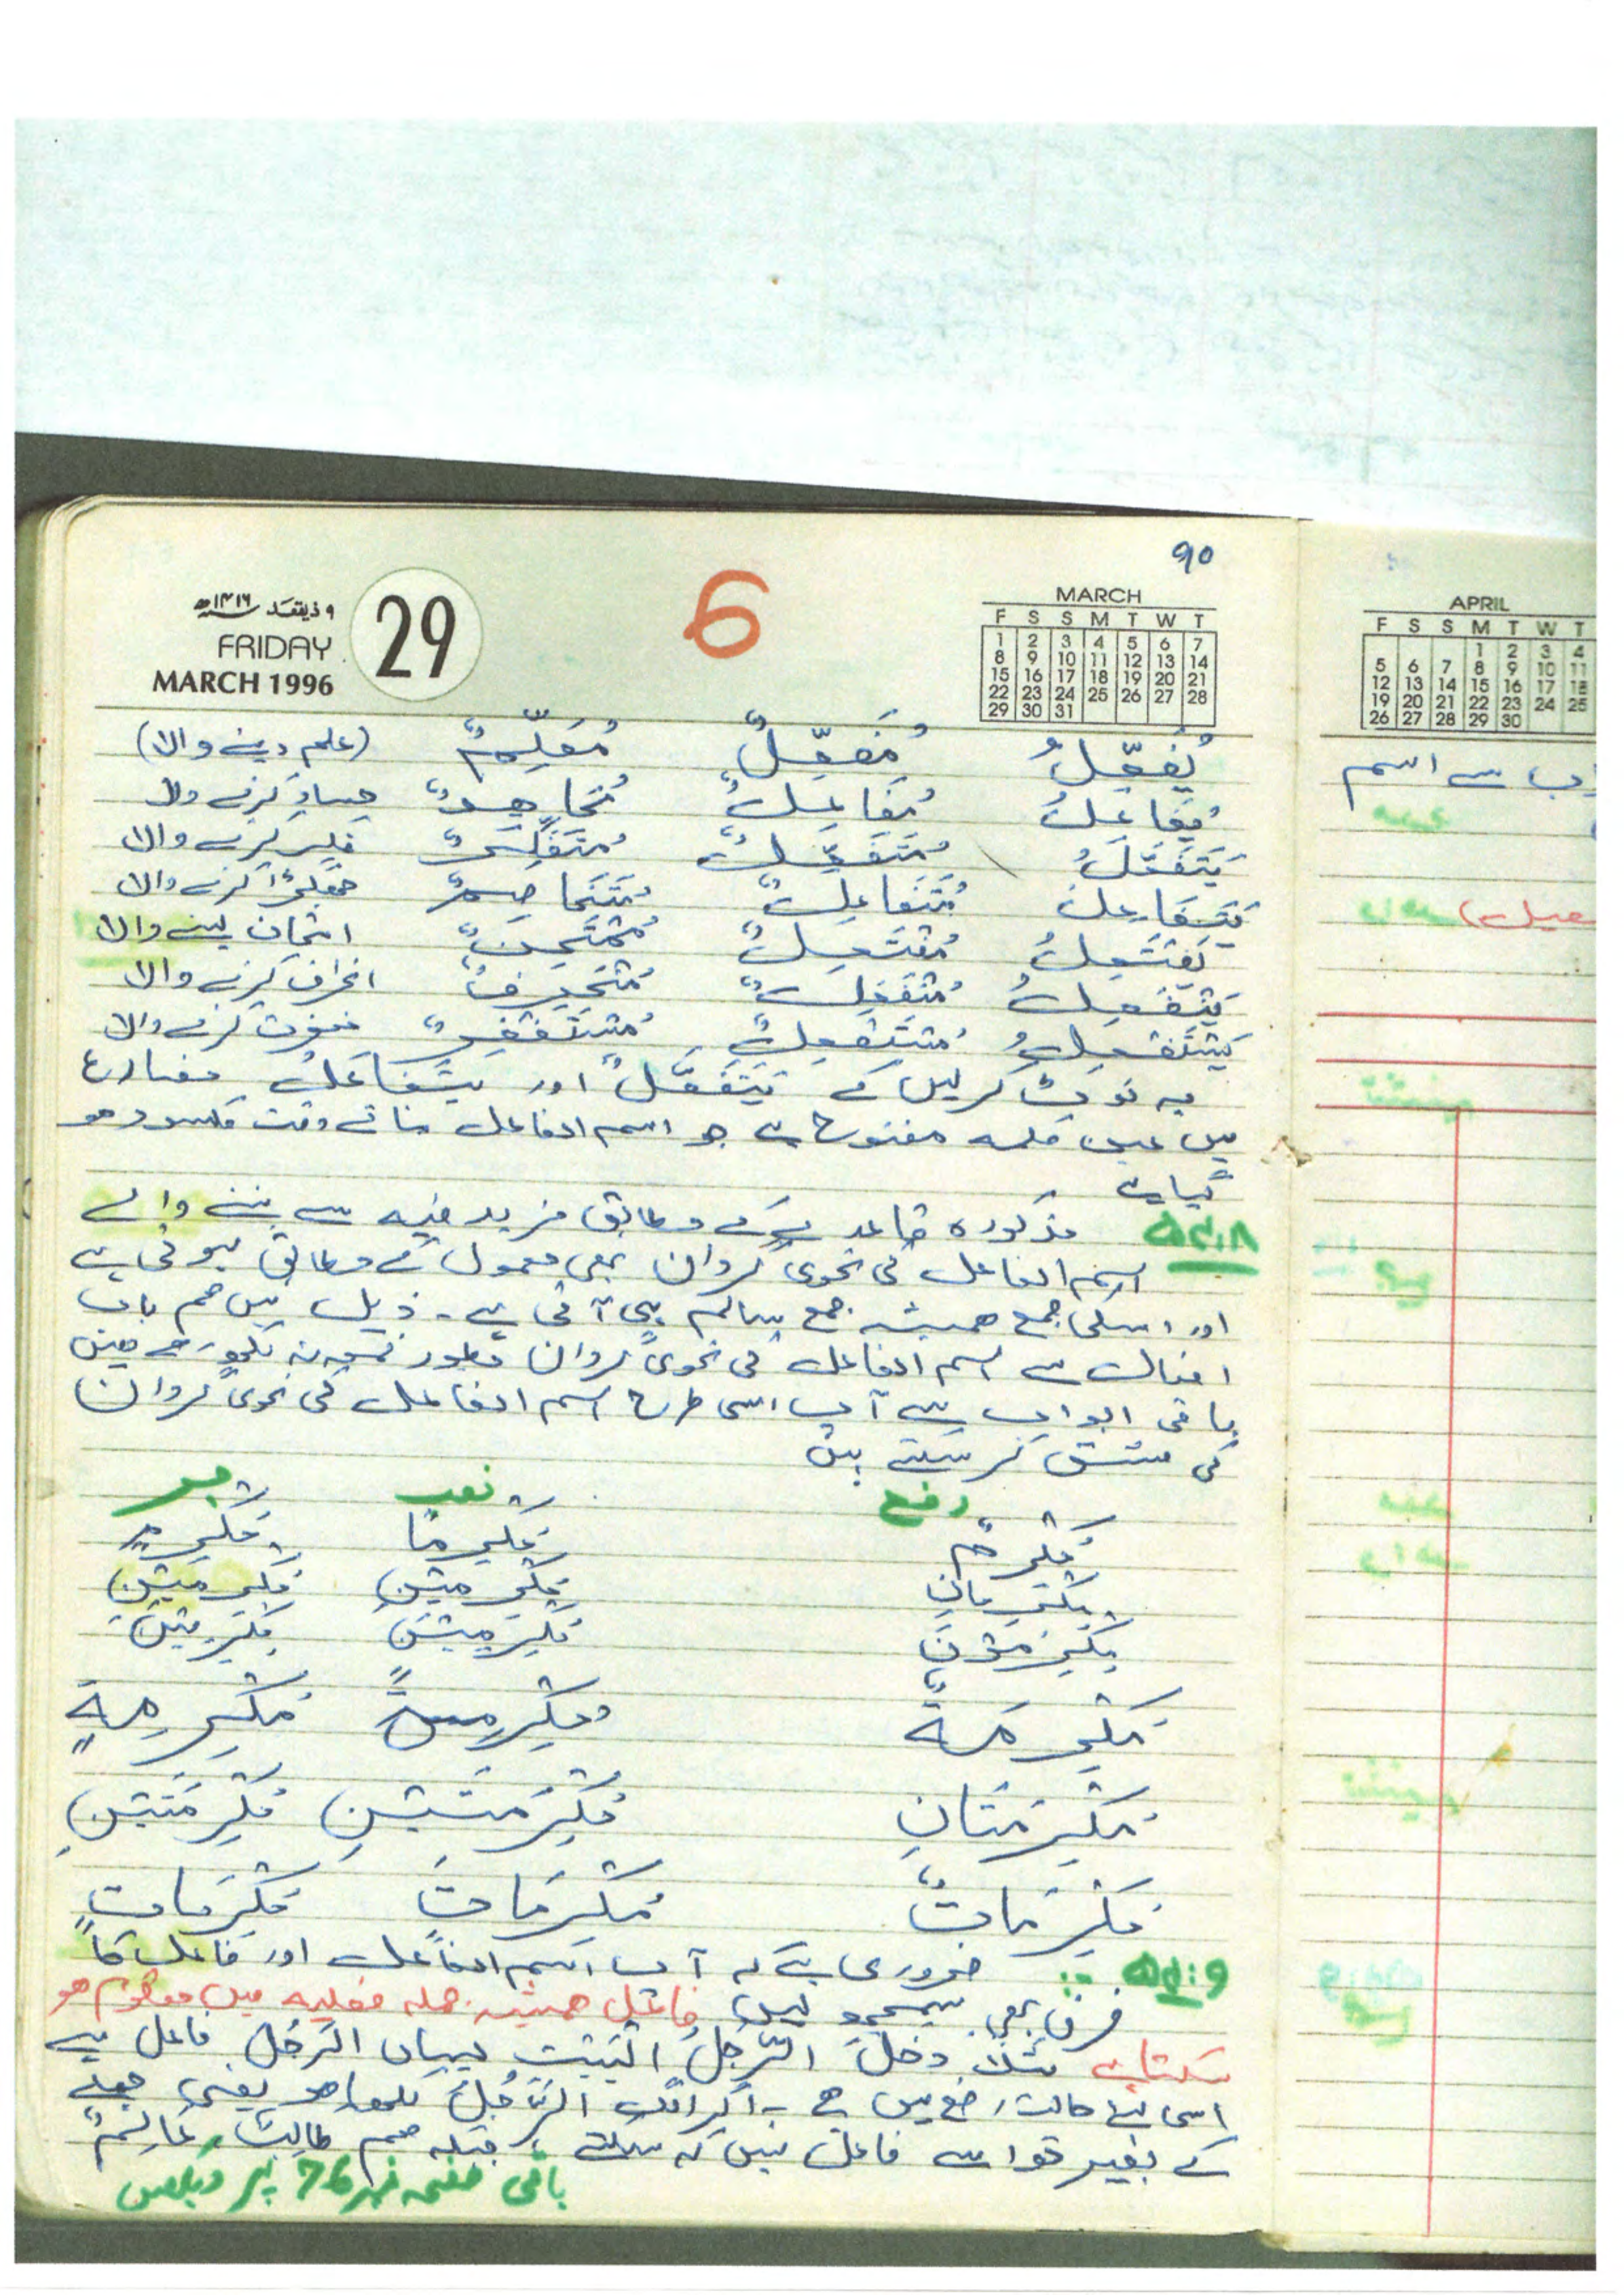 90
۹ ذیقعد ۱۴۱۶ھ
FRIDAY
MARCH 1996
29
6
MARCH
F S S M T W T
1 2 3 4 5 6 7
8 9 10 11 12 13 14
15 16 17 18 19 20 21
22 23 24 25 26 27 28
29 30 31
يُفَعِّلُ مُفَعِّلٌ مُعَلِّمٌ (علم دینے والا)
يُفَاعِلُ مُفَاعِلٌ مُجَاهِدٌ جہاد کرنے والا
يَتَفَعَّلُ مُتَفَعِّلٌ مُتَفَكِّرٌ فکر کرنے والا
يَتَفَاعَلُ مُتَفَاعِلٌ مُتَخَاصِمٌ جھگڑا کرنے والا
يَفْتَعِلُ مُفْتَعِلٌ مُمْتَحِنٌ امتحان لینے والا
يَنْفَعِلُ مُنْفَعِلٌ مُنْحَرِفٌ انحراف کرنے والا
يَسْتَفْعِلُ مُسْتَفْعِلٌ مُسْتَغْفِرٌ والا
یہ نوٹ کر لیں کہ يَتَفَعَّلُ اور يَتَفَاعَلُ مضارع
میں عین کلمہ مفتوح ہے جو اسم الفاعل بناتے وقت مکسور ہو
گیا ہے
۵۴:۸ مذکورہ قاعدے کے مطابق مزید فیہ سے بننے والے
اسم الفاعل کی نحوی گردان بھی معمول کے مطابق ہوتی ہے
اور اسکی جمع ھمیشہ جمع سالم ہی آتی ہے۔ ذیل میں ھم باب
افعال سے اسم الفاعل کی نحوی گردان بطور نمونہ لکھ رہے ہیں
باقی ابواب سے آپ اسی طرح اسم الفاعل کی نحوی گردان
کی مشق کر سکتے ہیں
رفع نصب جر
مُكْرِمٌ مُكْرِمًا مُكْرِمٍ
مُكْرِمَانِ مُكْرِمَيْنِ مُكْرِمَيْنِ
مُكْرِمُوْنَ مُكْرِمِيْنَ مُكْرِمِيْنَ
مُكْرِمَةٌ مُكْرِمَةً مُكْرِمَةٍ
مُكْرِمَتَانِ مُكْرِمَتَيْنِ مُكْرِمَتَيْنِ
مُكْرِمَاتٌ مُكْرِمَاتٍ مُكْرِمَاتٍ
۵۴:۹ ضروری ہے کہ آپ اسم الفاعل اور فاعل کا
فرق بھی سمجھ لیں فاعل ھمیشہ جملہ فعلیہ میں معلوم ھو
سکتا ہے مثلاً دَخَلَ الرَّجُلُ الْبَيْتَ یہاں الرَّجُلُ فاعل ہے
اسی لئے حالت رفع میں ہے اگر الگ الرَّجُلُ لکھا ھو یعنی جملے
کے بغیر تو اسے فاعل نہیں کہہ سکتے جبکہ ھم طَالِبٌ، عَالِمٌ
باقی صفحہ نمبر 76 پر دیکھیں
APRIL
F S S M T W T
1 2 3 4
5 6 7 8 9 10 11
12 13 14 15 16 17 18
19 20 21 22 23 24 25
26 27 28 29 30
سے اسم